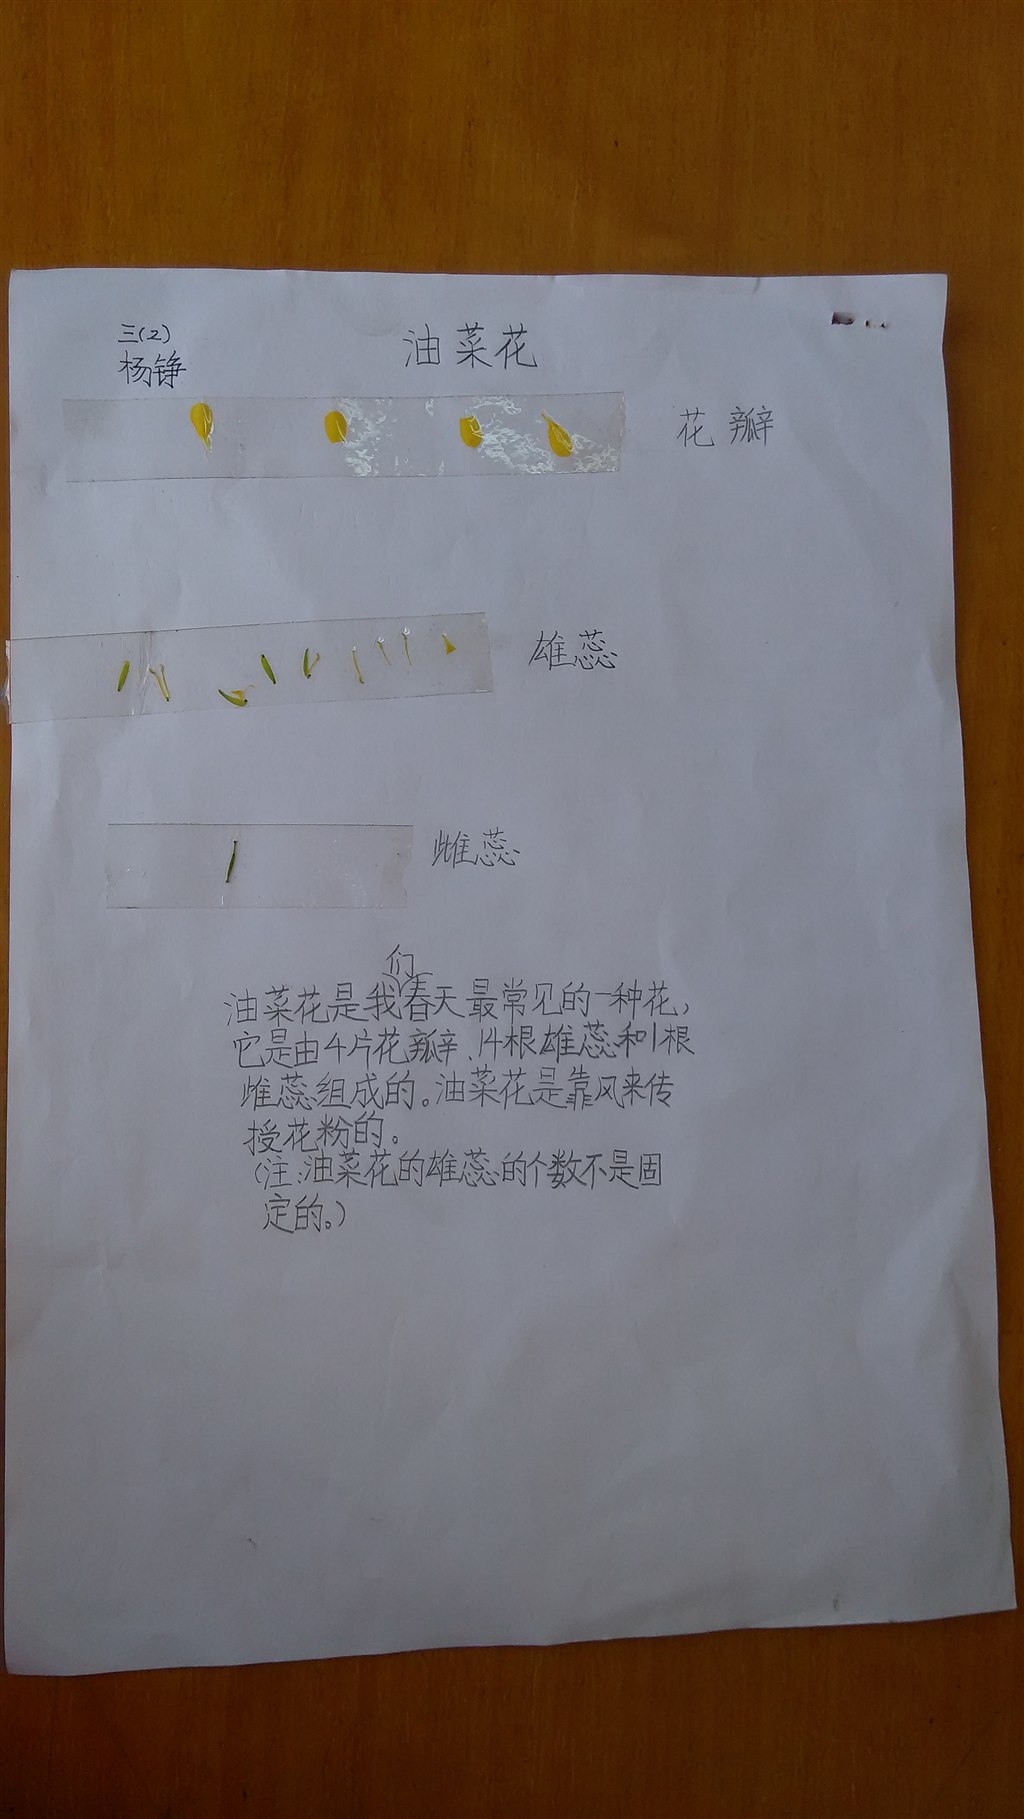 三(2)
杨铮
油菜花
花瓣
雄蕊
雌蕊
油菜花是我们春天最常见的一种花,
它是由4片花瓣、14根雄蕊和1根
雌蕊组成的。油菜花是靠风来传
授花粉的。
(注:油菜花的雄蕊的个数不是固
定的。)